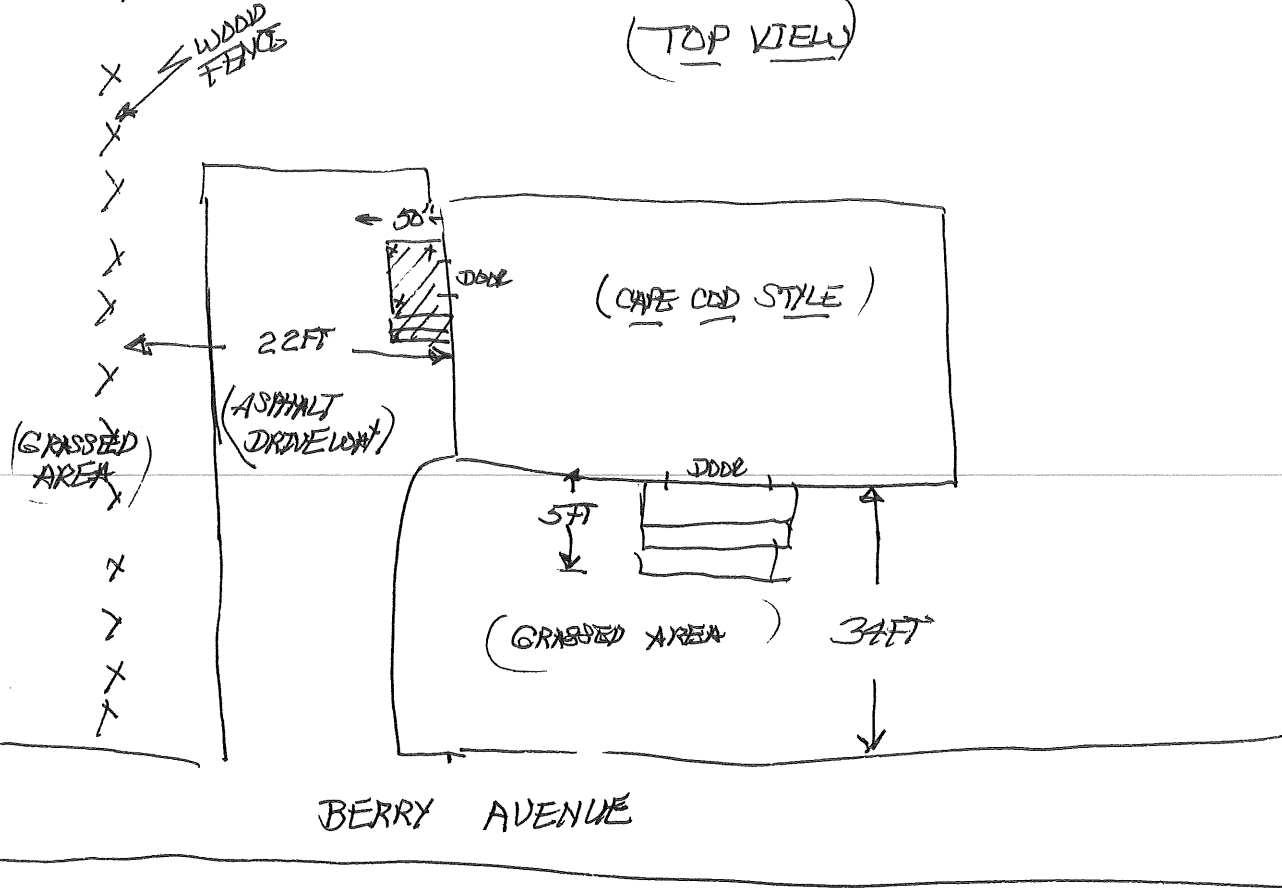 WOOD
FENCE
(TOP VIEW)
50"
DOOR
(CAPE COD STYLE)
22FT
(ASPHALT
DRIVEWAY)
(GRASSED
AREA)
DOOR
5FT
(GRASSED AREA)
34FT
BERRY AVENUE